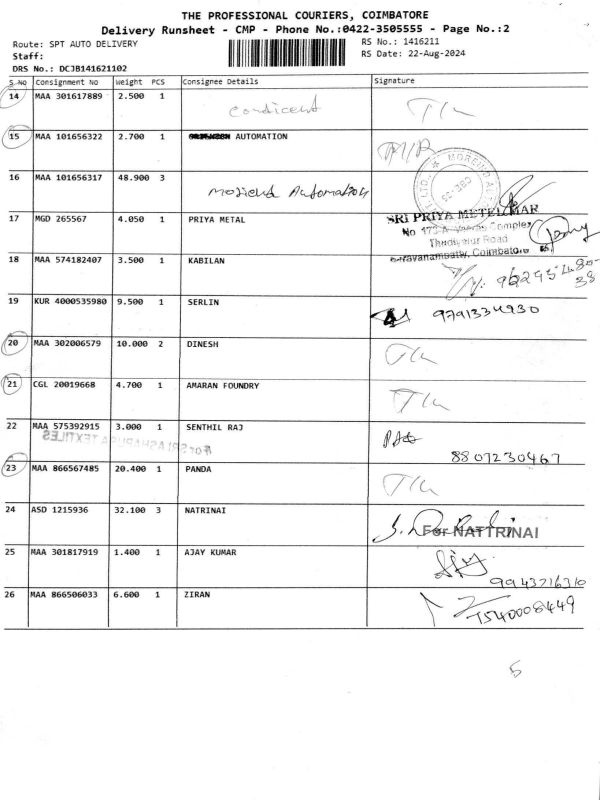 THE PROFESSIONAL COURIERS, COIMBATORE
Delivery Runsheet - CMP - Phone No.:0422-3505555 - Page No.:2
Route: SPT AUTO DELIVERY RS No.: 1416211
Staff: RS Date: 22-Aug-2024
DRS No.: DCJB141621102
S.No Consignment No Weight PCS Consignee Details Signature
14 MAA 301617889 2.500 1
15 MAA 101656322 2.700 1 AUTOMATION
16 MAA 101656317 48.900 3 Automation
17 MGD 265567 4.050 1 PRIYA METAL SRI PRIYA METEL MAR
Complex
Road
Coimbatore
18 MAA 574182407 3.500 1 KABILAN
19 KUR 4000535980 9.500 1 SERLIN 9791334930
20 MAA 302006579 10.000 2 DINESH
21 CGL 20019668 4.700 1 AMARAN FOUNDRY
22 MAA 575392915 3.000 1 SENTHIL RAJ
8807230467
23 MAA 866567485 20.400 1 PANDA
24 ASD 1215936 32.100 3 NATRINAI
For NATTRINAI
25 MAA 301817919 1.400 1 AJAY KUMAR
9943716310
26 MAA 866506033 6.600 1 ZIRAN
7540008449
5